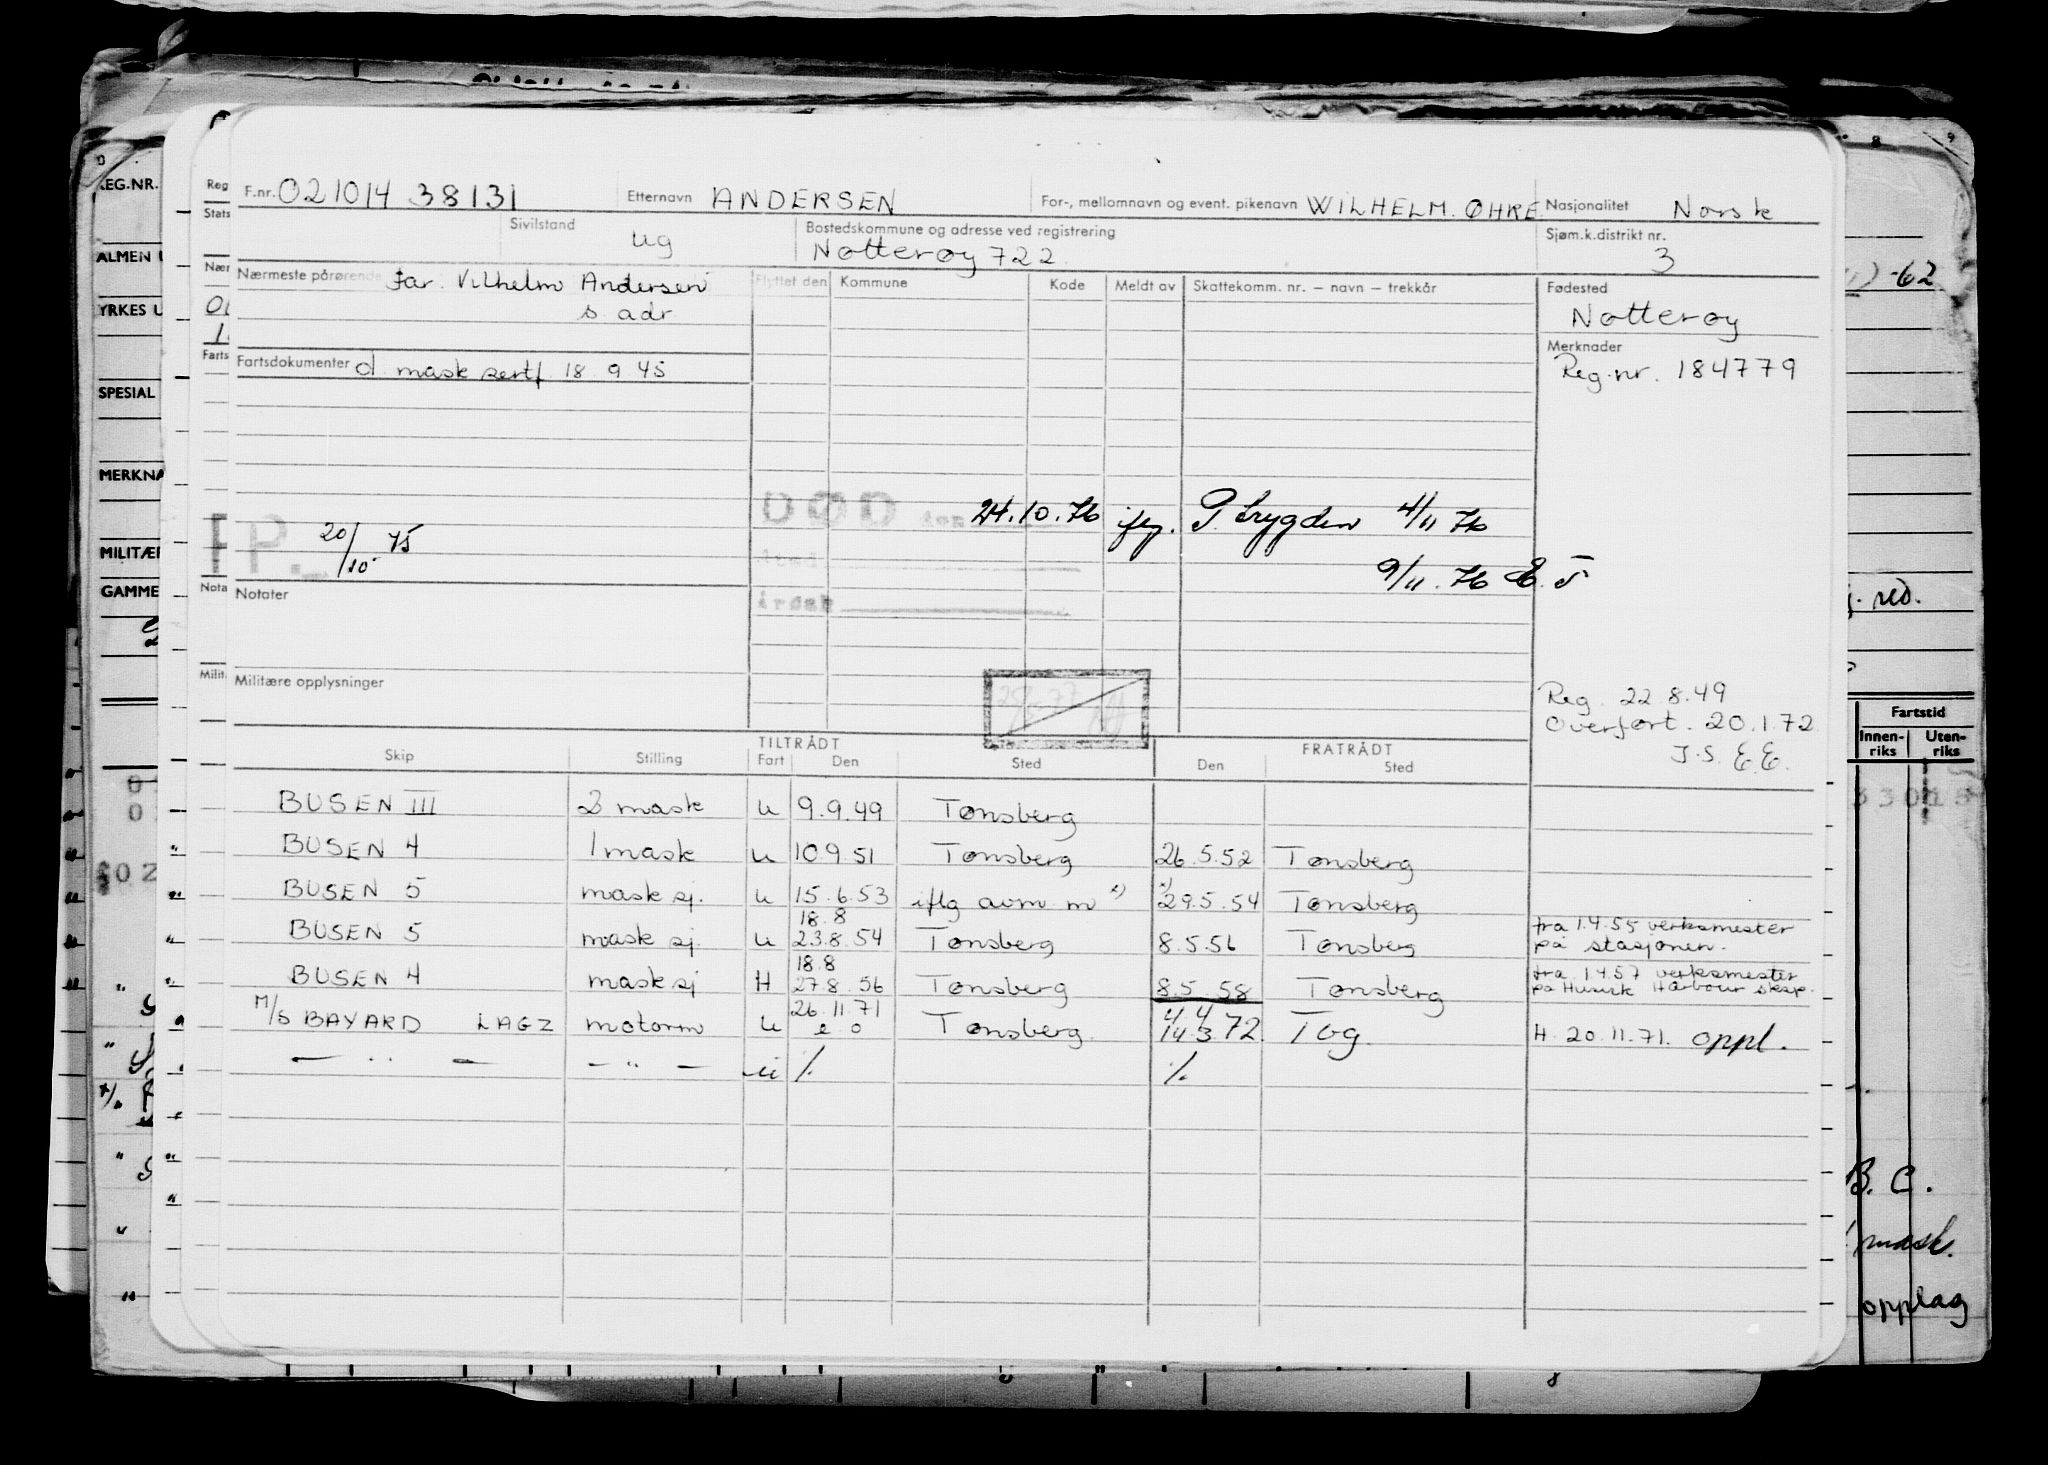 F.nr. 021014 38131 Etternavn ANDERSEN For-, mellomnavn og event. pikenavn WILHELM. ØHRE Nasjonalitet Norsk
Sivilstand ug Bostedskommune og adresse ved registrering Sjøm.k.distrikt nr.
Nøtterøy 722 3
Nærmeste pårørende Far. Vilhelm Andersen Flyttet den Kommune Kode Meldt av Skattekomm. nr. — navn — trekkår Fødested
s. adr Nøtterøy
Merknader
Fartsdokumenter d mask sertf 18 9 45 Reg.nr. 184779
DØD den 24.10.76 iflg. P. trygden 4/11 76
PP. 20/10 75
9/11. 76 E. T
Notater
Militære opplysninger
Reg. 22.8.49
Overført. 20.1.72
J.S. E.E.
TILTRÅDT FRATRÅDT
Skip Stilling Fart Den Sted Den Sted
BUSEN III 2 mask u 9.9.49 Tønsberg
BUSEN 4 1 mask u 10 9 51 Tønsberg 26.5.52 Tønsberg
BUSEN 5 mask sj. u 15.6.53 iflg avm. m x) x) 29.5.54 Tønsberg
18.8 fra 1.4.55 verksmester
BUSEN 5 mask sj. u 23.8.54 Tønsberg 8.5.56 Tønsberg på stasjonen.
18.8 fra 1.4.57 verksmester
BUSEN 4 mask sj H 27.8.56 Tønsberg 8.5.58 Tønsberg på Husvik Harbour
26.11.71 4/4
M/S BAYARD LAGZ motorm u e o Tønsberg. 14.3.72. Tbg. H. 20.11.71. oppl.
— " — — " — u % %
REG.NR.
ALMEN U
YRKES U
SPESIAL
MERKNA
MILITÆR
GAMME
Reg
Stats
Nær
Farts
Nota
Milit
-62
red.
Fartstid
Innen-riks Uten-riks
B. C.
mask.
opplag